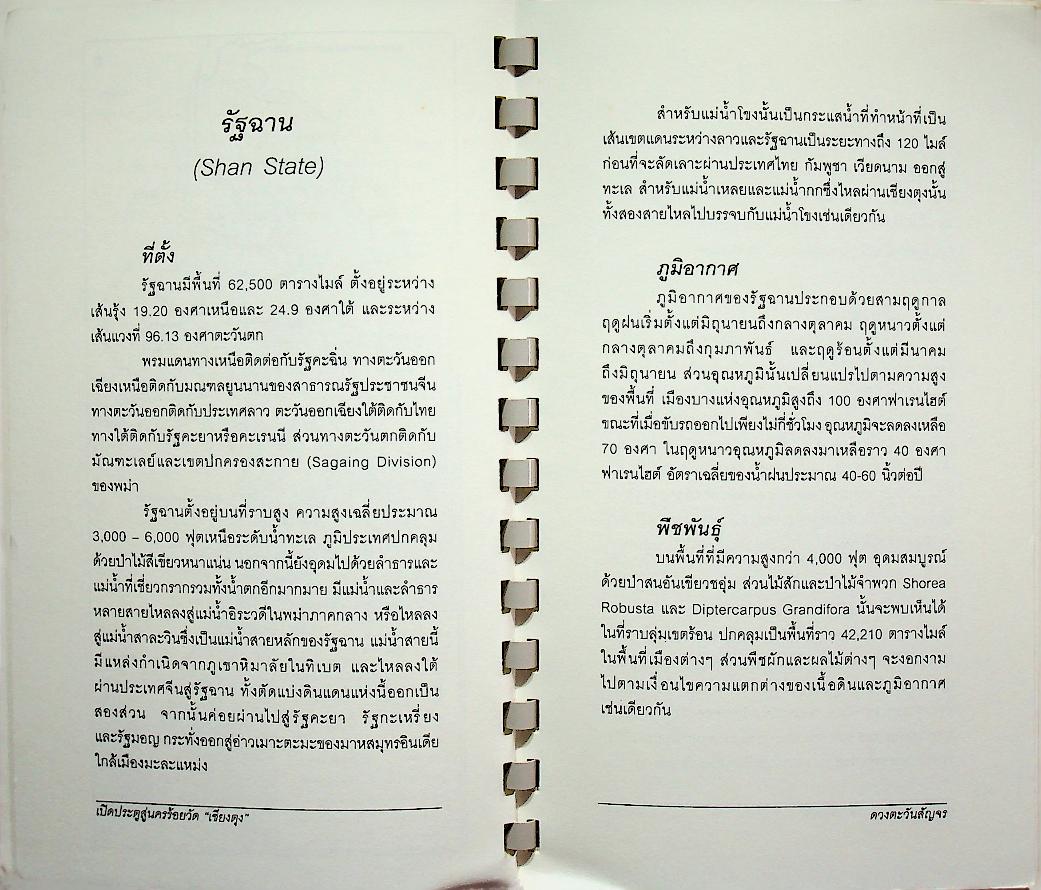 รัฐฉาน
(Shan State)
ที่ตั้ง
รัฐฉานมีพื้นที่ 62,500 ตารางไมล์ ตั้งอยู่ระหว่าง
เส้นรุ้ง 19.20 องศาเหนือและ 24.9 องศาใต้ และระหว่าง
เส้นแวงที่ 96.13 องศาตะวันตก
พรมแดนทางเหนือติดต่อกับรัฐคะฉิ่น ทางตะวันออก
เฉียงเหนือติดกับมณฑลยูนนานของสาธารณรัฐประชาชนจีน
ทางตะวันออกติดกับประเทศลาว ตะวันออกเฉียงใต้ติดกับไทย
ทางใต้ติดกับรัฐคะยาหรือคะเรนนี ส่วนทางตะวันตกติดกับ
มัณฑะเลย์และเขตปกครองสะกาย (Sagaing Division)
ของพม่า
รัฐฉานตั้งอยู่บนที่ราบสูง ความสูงเฉลี่ยประมาณ
3,000 – 6,000 ฟุตเหนือระดับน้ำทะเล ภูมิประเทศปกคลุม
ด้วยป่าไม้สีเขียวหนาแน่น นอกจากนี้ยังอุดมไปด้วยลำธารและ
แม่น้ำที่เชี่ยวกรากรวมทั้งน้ำตกอีกมากมาย มีแม่น้ำและลำธาร
หลายสายไหลลงสู่แม่น้ำอิระวดีในพม่าภาคกลาง หรือไหลลง
สู่แม่น้ำสาละวินซึ่งเป็นแม่น้ำสายหลักของรัฐฉาน แม่น้ำสายนี้
มีแหล่งกำเนิดจากภูเขาหิมาลัยในทิเบต และไหลลงใต้
ผ่านประเทศจีนสู่รัฐฉาน ทั้งตัดแบ่งดินแดนแห่งนี้ออกเป็น
สองส่วน จากนั้นค่อยผ่านไปสู่รัฐคะยา รัฐกะเหรี่ยง
และรัฐมอญ กระทั่งออกสู่อ่าวเมาะตะมะของมาหสมุทรอินเดีย
ใกล้เมืองมะละแหม่ง
เปิดประตูสู่นครร้อยวัด "เชียงตุง"
สำหรับแม่น้ำโขงนั้นเป็นกระแสน้ำที่ทำหน้าที่เป็น
เส้นเขตแดนระหว่างลาวและรัฐฉานเป็นระยะทางถึง 120 ไมล์
ก่อนที่จะลัดเลาะผ่านประเทศไทย กัมพูชา เวียดนาม ออกสู่
ทะเล สำหรับแม่น้ำเหลยและแม่น้ำกกซึ่งไหลผ่านเชียงตุงนั้น
ทั้งสองสายไหลไปบรรจบกับแม่น้ำโขงเช่นเดียวกัน
ภูมิอากาศ
ภูมิอากาศของรัฐฉานประกอบด้วยสามฤดูกาล
ฤดูฝนเริ่มตั้งแต่มิถุนายนถึงกลางตุลาคม ฤดูหนาวตั้งแต่
กลางตุลาคมถึงกุมภาพันธ์ และฤดูร้อนตั้งแต่มีนาคม
ถึงมิถุนายน ส่วนอุณหภูมินั้นเปลี่ยนแปรไปตามความสูง
ของพื้นที่ เมืองบางแห่งอุณหภูมิสูงถึง 100 องศาฟาเรนไฮต์
ขณะที่เมื่อขับรถออกไปเพียงไม่กี่ชั่วโมง อุณหภูมิจะลดลงเหลือ
70 องศา ในฤดูหนาวอุณหภูมิลดลงมาเหลือราว 40 องศา
ฟาเรนไฮต์ อัตราเฉลี่ยของน้ำฝนประมาณ 40-60 นิ้วต่อปี
พืชพันธุ์
บนพื้นที่ที่มีความสูงกว่า 4,000 ฟุต อุดมสมบูรณ์
ด้วยป่าสนอันเขียวชอุ่ม ส่วนไม้สักและป่าไม้จำพวก Shorea
Robusta และ Diptercarpus Grandifora นั้นจะพบเห็นได้
ในที่ราบลุ่มเขตร้อน ปกคลุมเป็นพื้นที่ราว 42,210 ตารางไมล์
ในพื้นที่เมืองต่างๆ ส่วนพืชผักและผลไม้ต่างๆ จะงอกงาม
ไปตามเงื่อนไขความแตกต่างของเนื้อดินและภูมิอากาศ
เช่นเดียวกัน
ดวงตะวันสัญจร